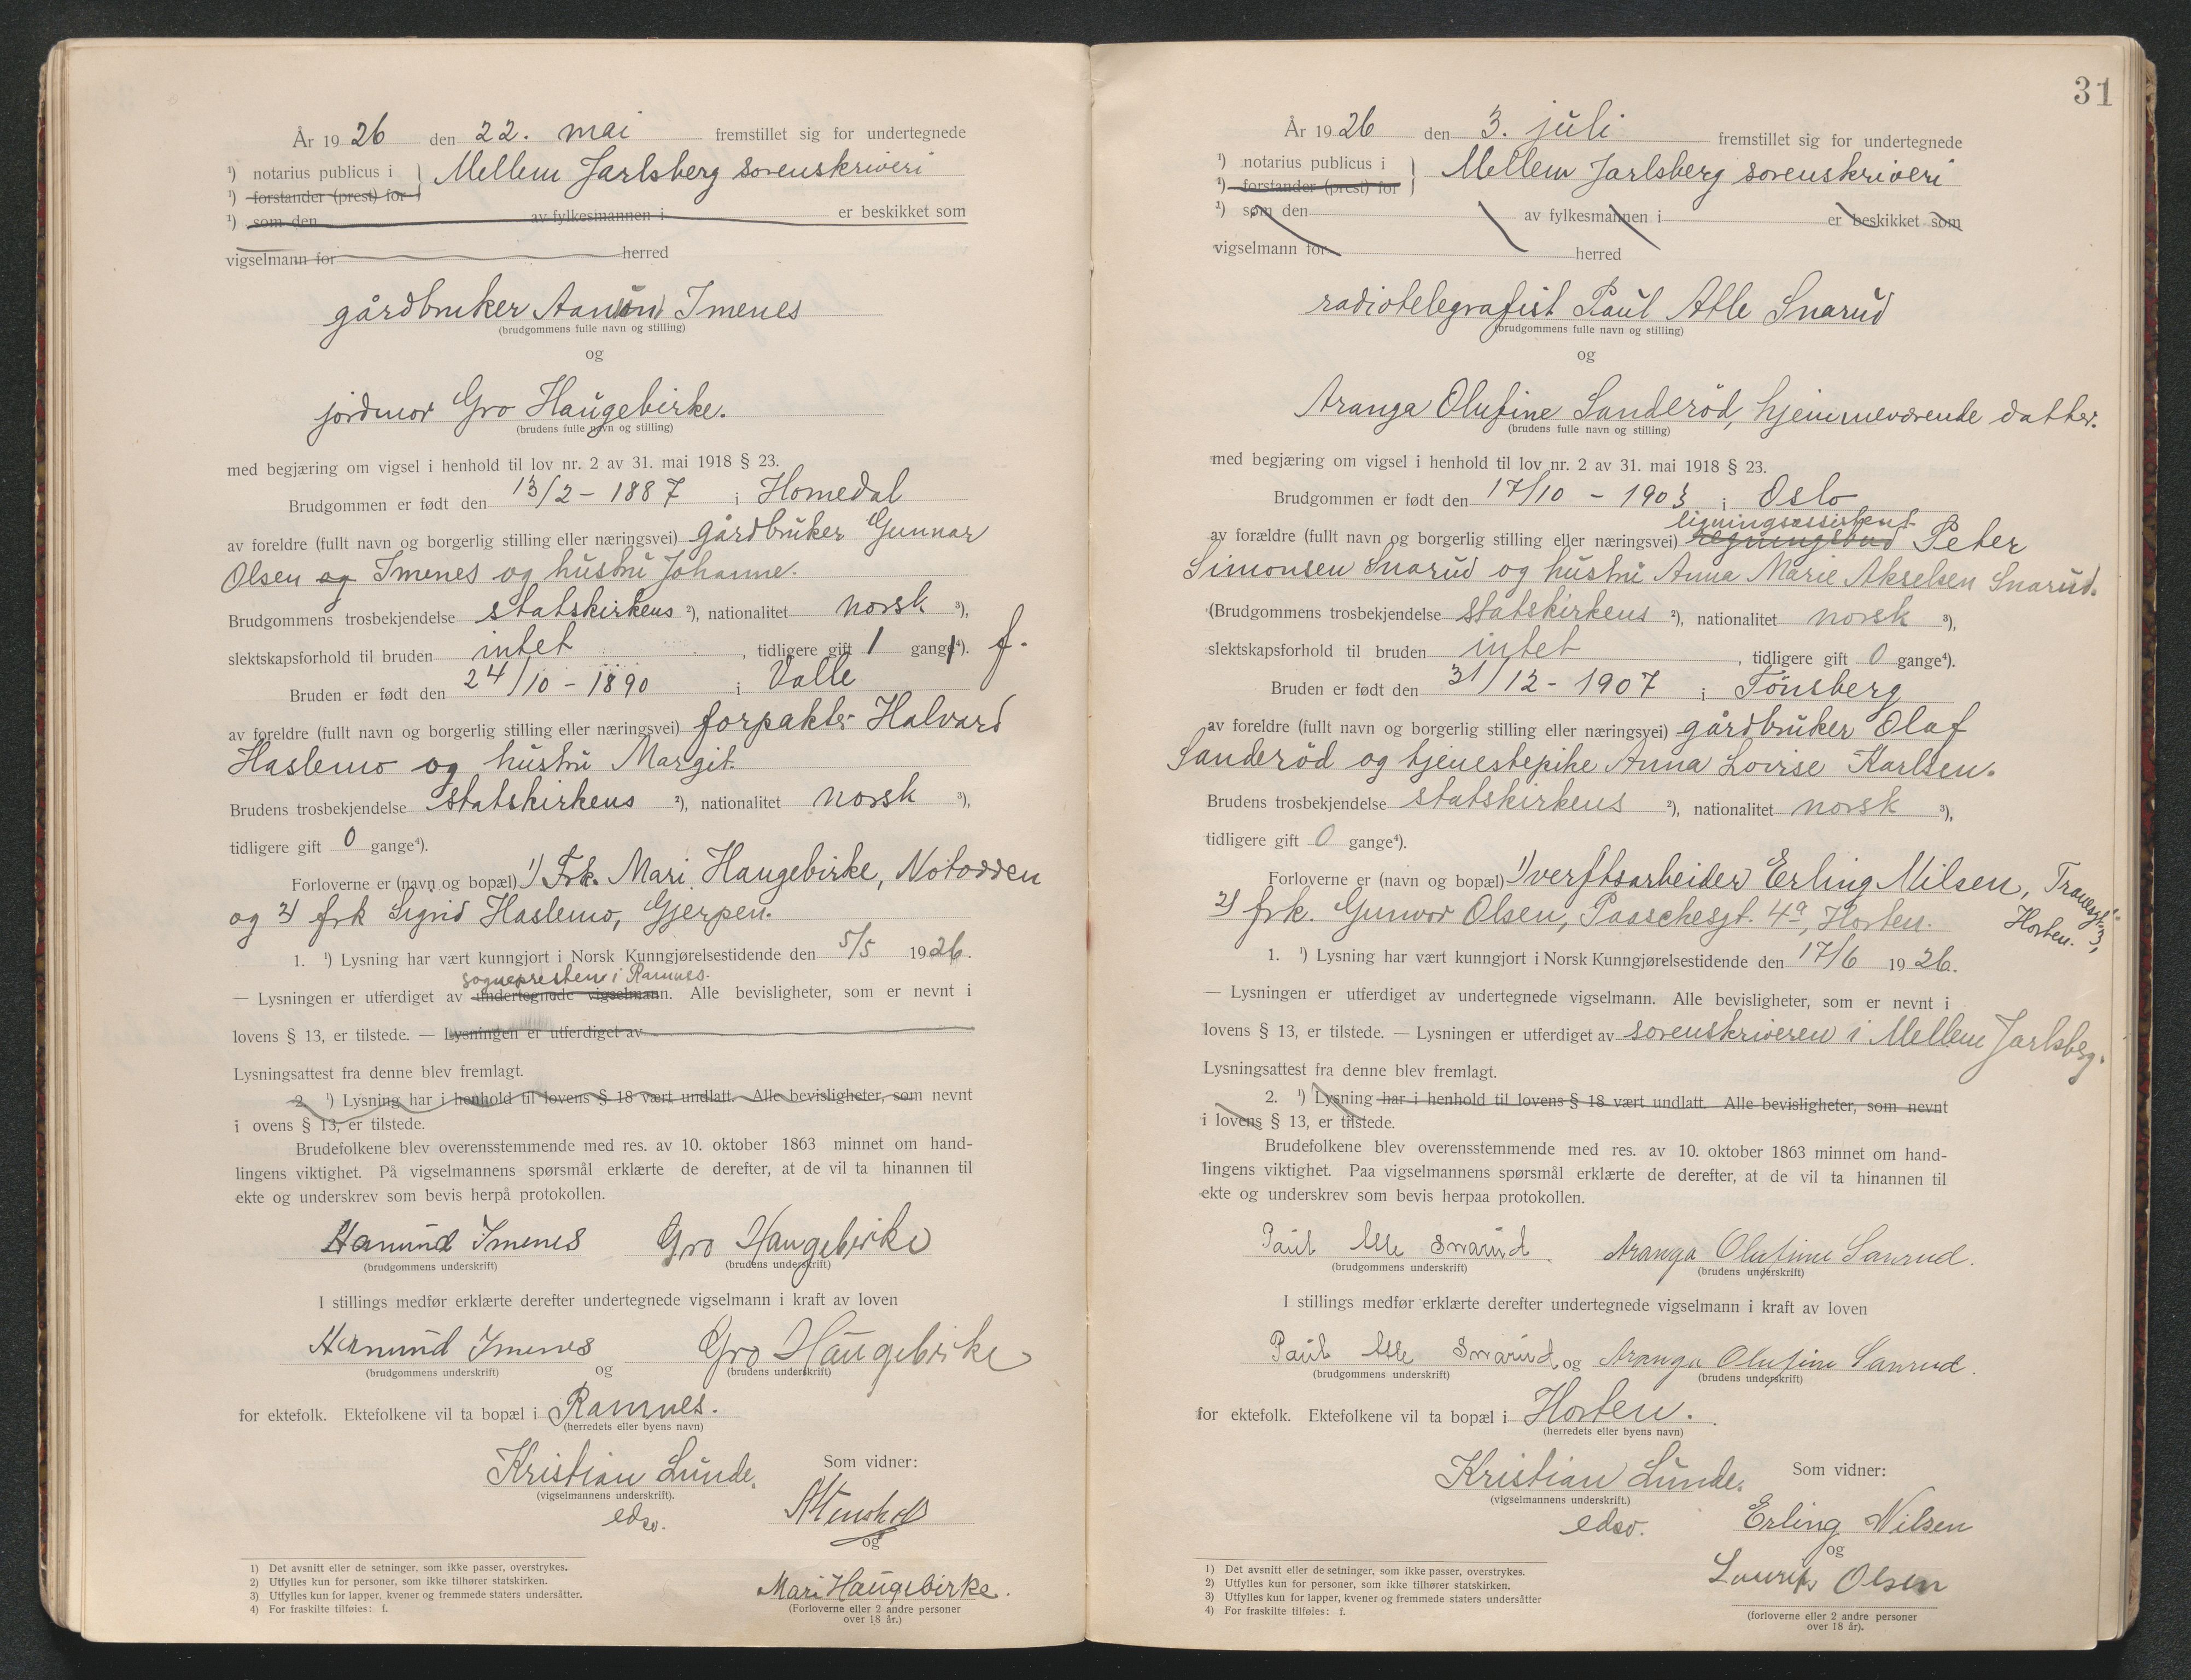 År 1926 den 22. mai fremstillet sig for undertegnede
¹) notarius publicus i } Mellem Jarlsberg sorenskriveri
¹) forstander (prest) for
¹) som den av fylkesmannen i er beskikket som
vigselmann for herred
gårdbruker Imenes
(brudgommens fulle navn og stilling)
og
jordmor Gro Haugebirke.
(brudens fulle navn og stilling)
med begjæring om vigsel i henhold til lov nr. 2 av 31. mai 1918 § 23.
Brudgommen er født den 13/2 - 1887 i Homedal
av foreldre (fullt navn og borgerlig stilling eller næringsvei) gårdbruker Gunnar
Olsen og Imenes og hustru Johanne.
Brudgommens trosbekjendelse statskirkens ²), nationalitet norsk ³),
slektskapsforhold til bruden intet, tidligere gift 1 gang⁴). f.
Bruden er født den 24/10 - 1890 i Valle
av foreldre (fullt navn og borgerlig stilling eller næringsvei) forpakter Halvard
Haslemo og hustru Margit.
Brudens trosbekjendelse statskirkens ²), nationalitet norsk ³),
tidligere gift 0 gange⁴).
Forloverne er (navn og bopæl) 1) Frk. Mari Haugebirke, Notodden
og 2) frk Sigrid Haslemo, Gjerpen.
1. ¹) Lysning har vært kunngjort i Norsk Kunngjørelsestidende den 5/5 1926.
sognepresten i Ramnes.
— Lysningen er utferdiget av undertegnede vigselmann. Alle bevisligheter, som er nevnt i
lovens § 13, er tilstede. — Lysningen er utferdiget av
Lysningsattest fra denne blev fremlagt.
2. ¹) Lysning har i henhold til lovens § 18 vært undlatt. Alle bevisligheter, som nevnt
i ovens § 13, er tilstede.
Brudefolkene blev overensstemmende med res. av 10. oktober 1863 minnet om hand-
lingens viktighet. På vigselmannens spørsmål erklærte de derefter, at de vil ta hinannen til
ekte og underskrev som bevis herpå protokollen.
Aanund Imenes Gro Haugebirke
(brudgommens underskrift) (brudens underskrift)
I stillings medfør erklærte derefter undertegnede vigselmann i kraft av loven
Aanund Imenes og Gro Haugebirke
(brudgommens underskrift) (brudens underskrift)
for ektefolk. Ektefolkene vil ta bopæl i Ramnes.
(herredets eller byens navn)
Kristian Lunde. Som vidner:
(vigselmannens underskrift).
edsv.
og
Mari Haugebirke.
(Forloverne eller 2 andre personer
over 18 år.)
1) Det avsnitt eller de setninger, som ikke passer, overstrykes.
2) Utfylles kun for personer, som ikke tilhører statskirken.
3) Utfylles kun for lapper, kvener og fremmede staters undersåtter.
4) For fraskilte tilføies: f.
31
År 1926 den 3. juli fremstillet sig for undertegnede
¹) notarius publicus i } Mellem Jarlsberg sorenskriveri
¹) forstander (prest) for
¹) som den av fylkesmannen i er beskikket som
vigselmann for herred
radiotelegrafist Paul Atle Snarud
(brudgommens fulle navn og stilling)
og
Aranga Olufine Sanderød, hjemmeværende datter.
(brudens fulle navn og stilling)
med begjæring om vigsel i henhold til lov nr. 2 av 31. mai 1918 § 23.
Brudgommen er født den 17/10 - 1903 i Oslo
ligningsassistent
av forældre (fullt navn og borgerlig stilling eller næringsvei) Peter
Simonsen Snarud og hustru Anna Marie Akselsen Snarud.
(Brudgommens trosbekjendelse statskirkens ²), nationalitet norsk ³),
slektskapsforhold til bruden intet, tidligere gift 0 gange⁴).
Bruden er født den 31/12 - 1907 i Tønsberg
av foreldre (fullt navn og borgerlig stilling eller næringsvei) gårdbruker Olaf
Sanderød og tjenestepike Anna Lovise Karlsen.
Brudens trosbekjendelse statskirkens ²), nationalitet norsk ³),
tidligere gift 0 gange⁴).
Forloverne er (navn og bopæl) 1) verftsarbeider Erling Nilsen, Tranesgt. 3, Horten.
2) frk. Gunvor Olsen, Paaschesgt. 4a, Horten.
1. ¹) Lysning har vært kunngjort i Norsk Kunngjørelsestidende den 17/6 1926.
— Lysningen er utferdiget av undertegnede vigselmann. Alle bevisligheter, som er nevnt i
lovens § 13, er tilstede. — Lysningen er utferdiget av sorenskriveren i Mellem Jarlsberg.
Lysningsattest fra denne blev fremlagt.
2. ¹) Lysning har i henhold til lovens § 18 vært undlatt. Alle bevisligheter, som nevnt
i lovens § 13, er tilstede.
Brudefolkene blev overensstemmende med res. av 10. oktober 1863 minnet om hand-
lingens viktighet. Paa vigselmannens spørsmål erklærte de derefter, at de vil ta hinannen til
ekte og underskrev som bevis herpaa protokollen.
Paul Atle Snarud Aranga Olufine Sanrud.
(brudgommens underskrift) (brudens underskrift)
I stillings medfør erklærte derefter undertegnede vigselmann i kraft av loven
Paul Atle Snarud og Aranga Olufine Sanrud.
(brudgommens underskrift) (brudens underskrift)
for ektefolk. Ektefolkene vil ta bopæl i Horten.
(herredets eller byens navn)
Kristian Lunde. Som vidner:
(vigselmannens underskrift.)
edsv. Erling Nilsen
og
Olsen
(forloverne eller 2 andre personer
over 18 år).
1) Det avsnitt eller de setninger, som ikke passer, overstrykes.
2) Utfylles kun for personer, som ikke tilhører statskirken.
3) Utfylles kun for lapper, kvener og fremmede staters undersåtter
4) For fraskilte tilføies: f.